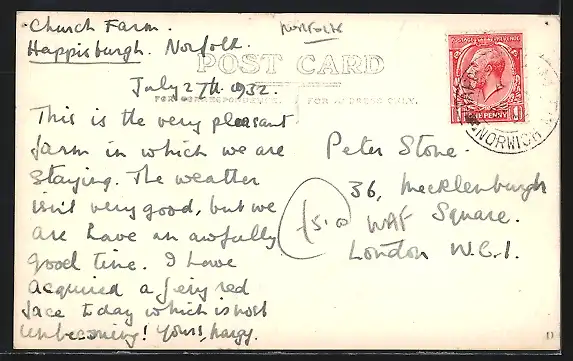 Church Farm.
Happisburgh. Norfolk.
Norfolk
POST CARD
July 27th. 1932.
FOR CORRESPONDENCE.
FOR ADDRESS ONLY.
This is the very pleasant
farm in which we are
staying. The weather
isn't very good, but we
are have an awfully
good time. I have
acquired a fiery red
face today which is most
unbecoming! Yours,
Peter Stone.
36, Mecklenburgh
Square.
London W.C.1.
£5.0
WAF
POSTAGE REVENUE
ONE PENNY
NORWICH